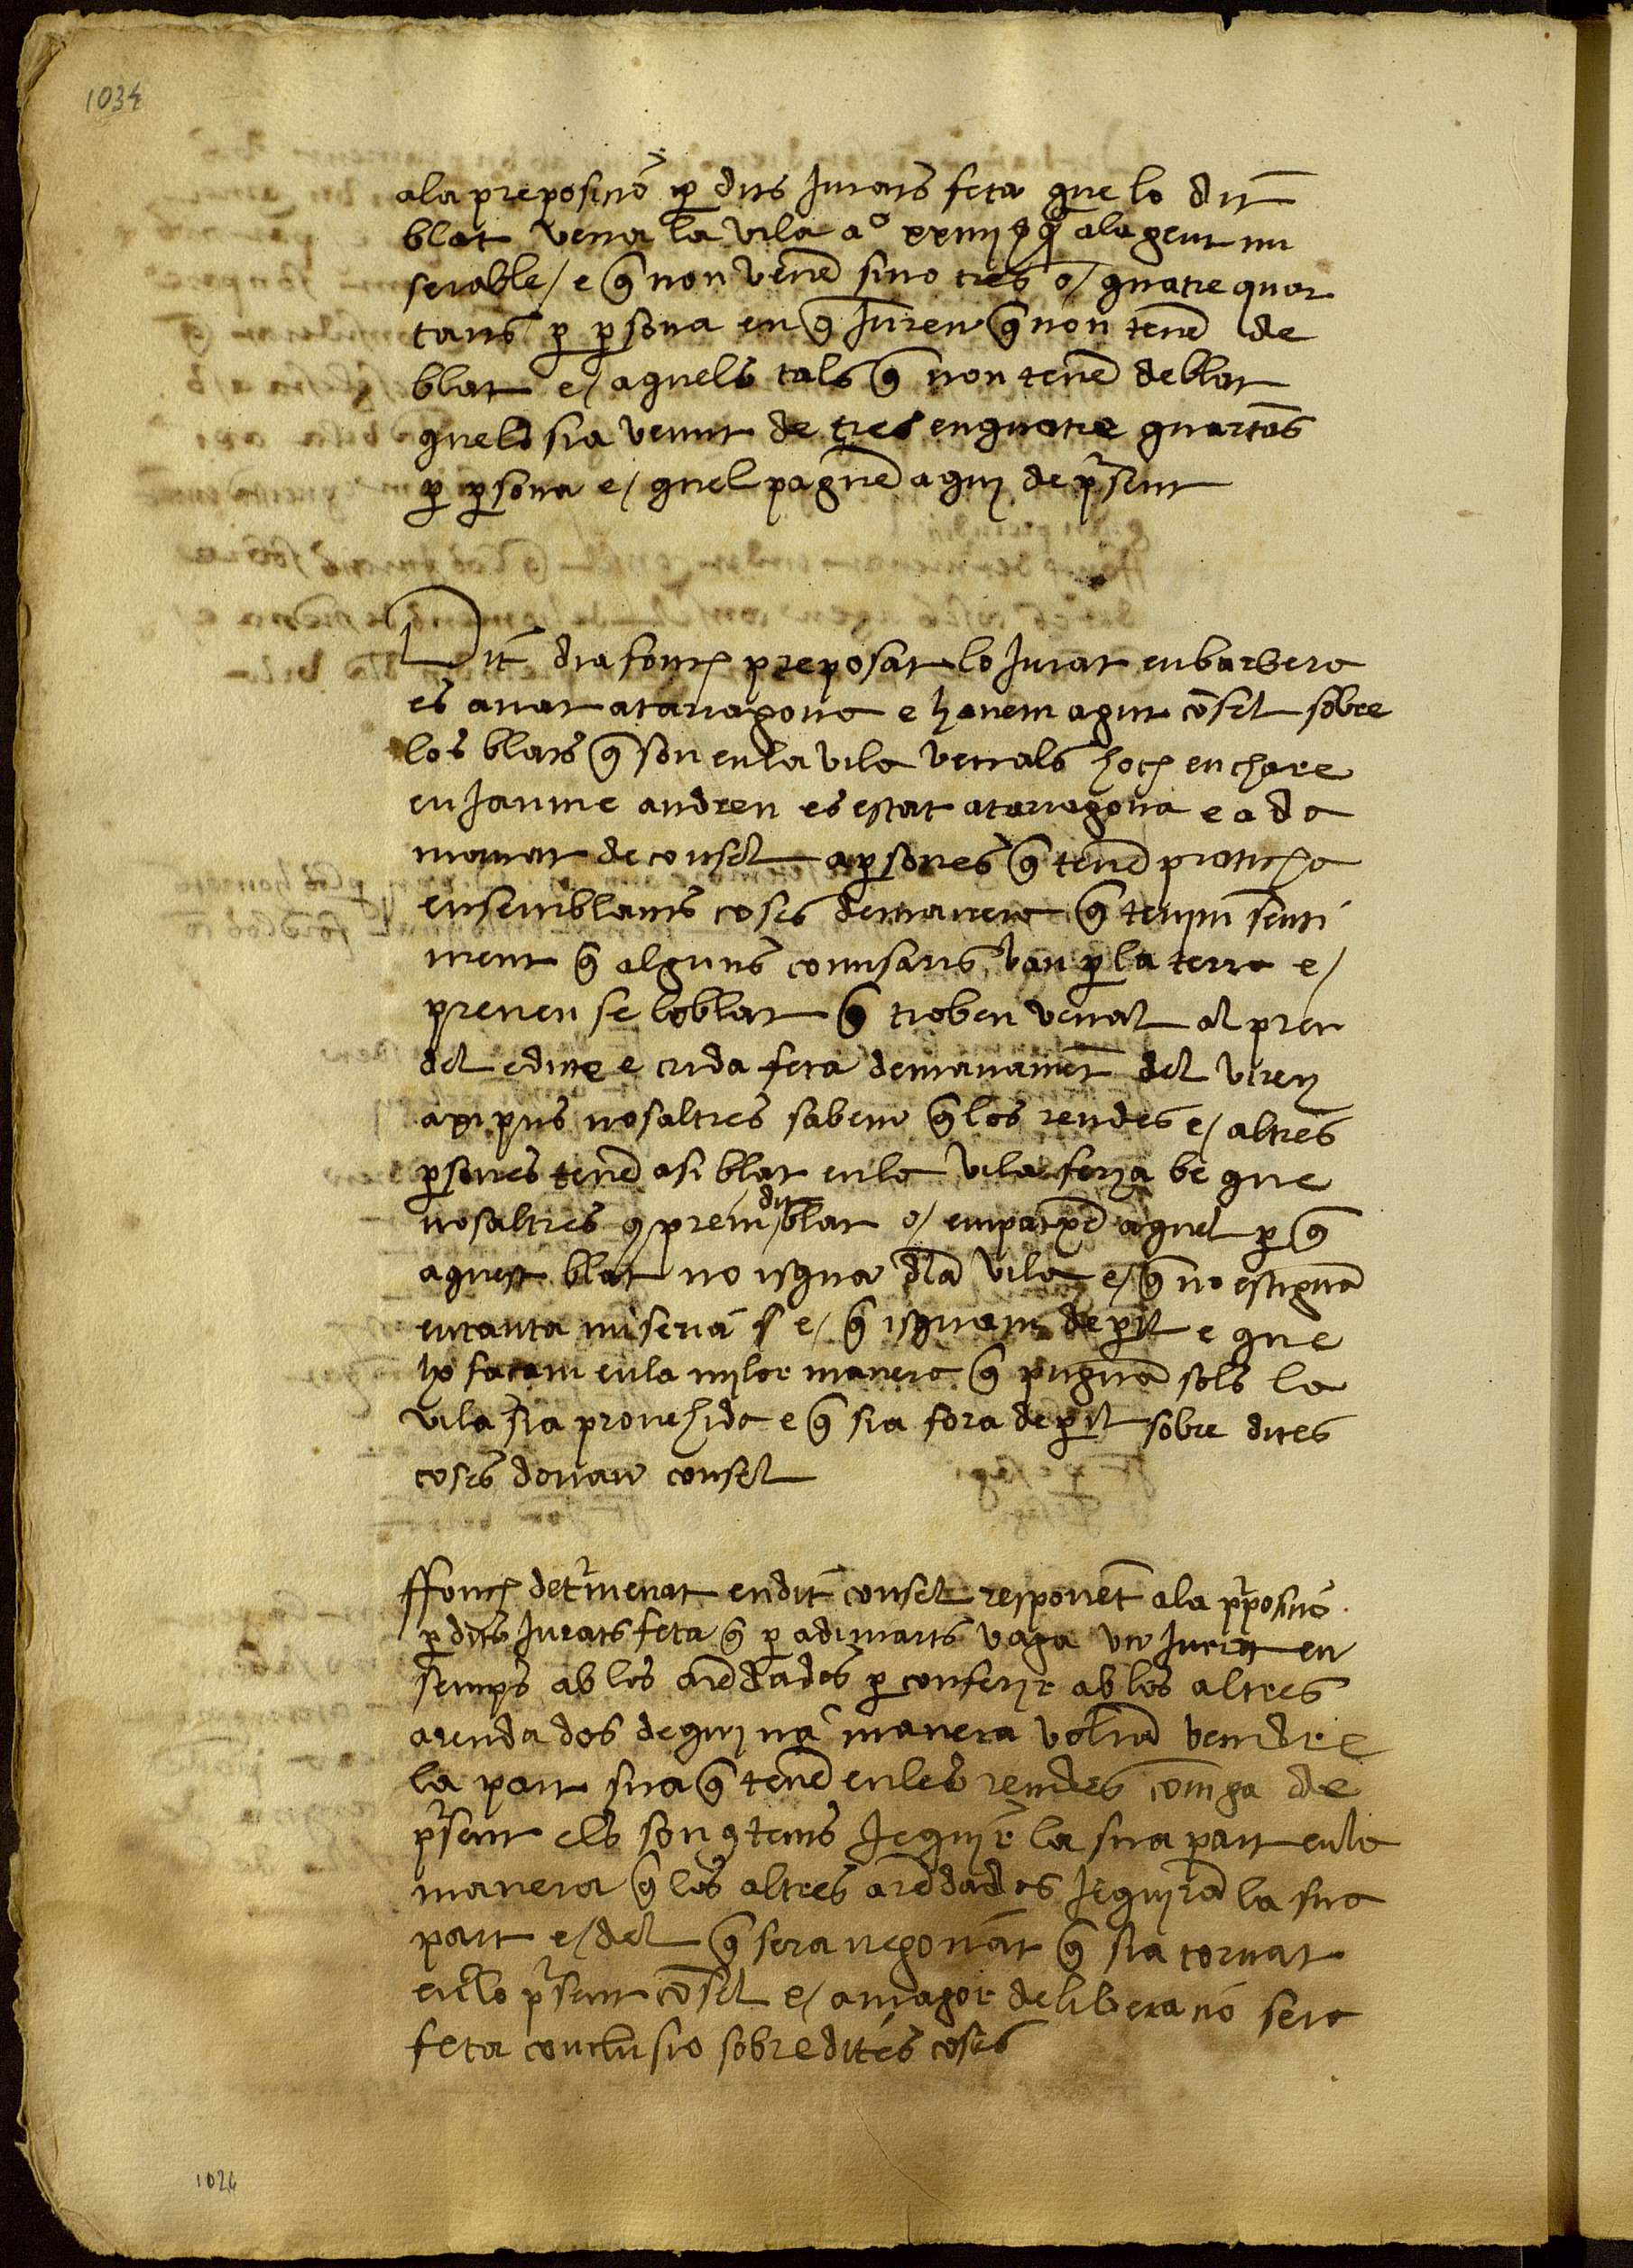 1034
ala preposicio per dits Jurats feta que lo dit
blat vena la vila a° xxiiij ss ala gent mi
serable / e q̃ non venẽ sino tres o / quatre quar
tans p psona en q̃ Juren q̃ non tenẽ de
blat e / aquels tals q̃ non tenẽ deblat
quels sia venut de tres enquatre quartãs
p psona e / quel paguẽ aquj de pñt sent
Dit dia fonch preposat lo Jurat en barbera
es anat atarragona e havem agut cõsel sobre
los blats q̃ son en la vila venals hoch enchara
en Jaume andreu es estat atarragona e a de
manat de consel apsones q̃ tenẽ praticha
ensemblants coses demanera q̃ tenim senti
ment q̃ alguns comisaris van p la terra e /
prenen se loblat q̃ troben venal al preu
del edicte e crida feta demanamẽt del virey
axi pus nosaltres sabem q̃ los rendes e / altres
psones tenẽ asi blat enla vila seria be que
nosaltres 9prem dit blat o / empatxẽ aquel p q̃
aquest blat no isqua dla vila e / q̃ no estiguã
entanta miseria e / q̃ isquam de pil e que
ho façam enla milor manera q̃ puguã sols la
vila sia provehida e q̃ sia fora de pil sobre dites
coses donau consel
ffonch detminat endit consel responẽt ala pposicio
p dits Jurats feta q̃ p adimarts vaga un Jurat en
semps ab los arẽdados p conferir ab los altres
arendados dequina manera volrã vendre
la part sua q̃ tenẽ enles rendes com ga de
psent els son 9tents Jequir la sua part enla
manera q̃ los altres arẽdados Jequirã la sua
part e / del q̃ sera negociat q̃ sia tornat
enlo psent cõsel e / a magor deliberacio sera
feta conclusio sobredites coses
1024